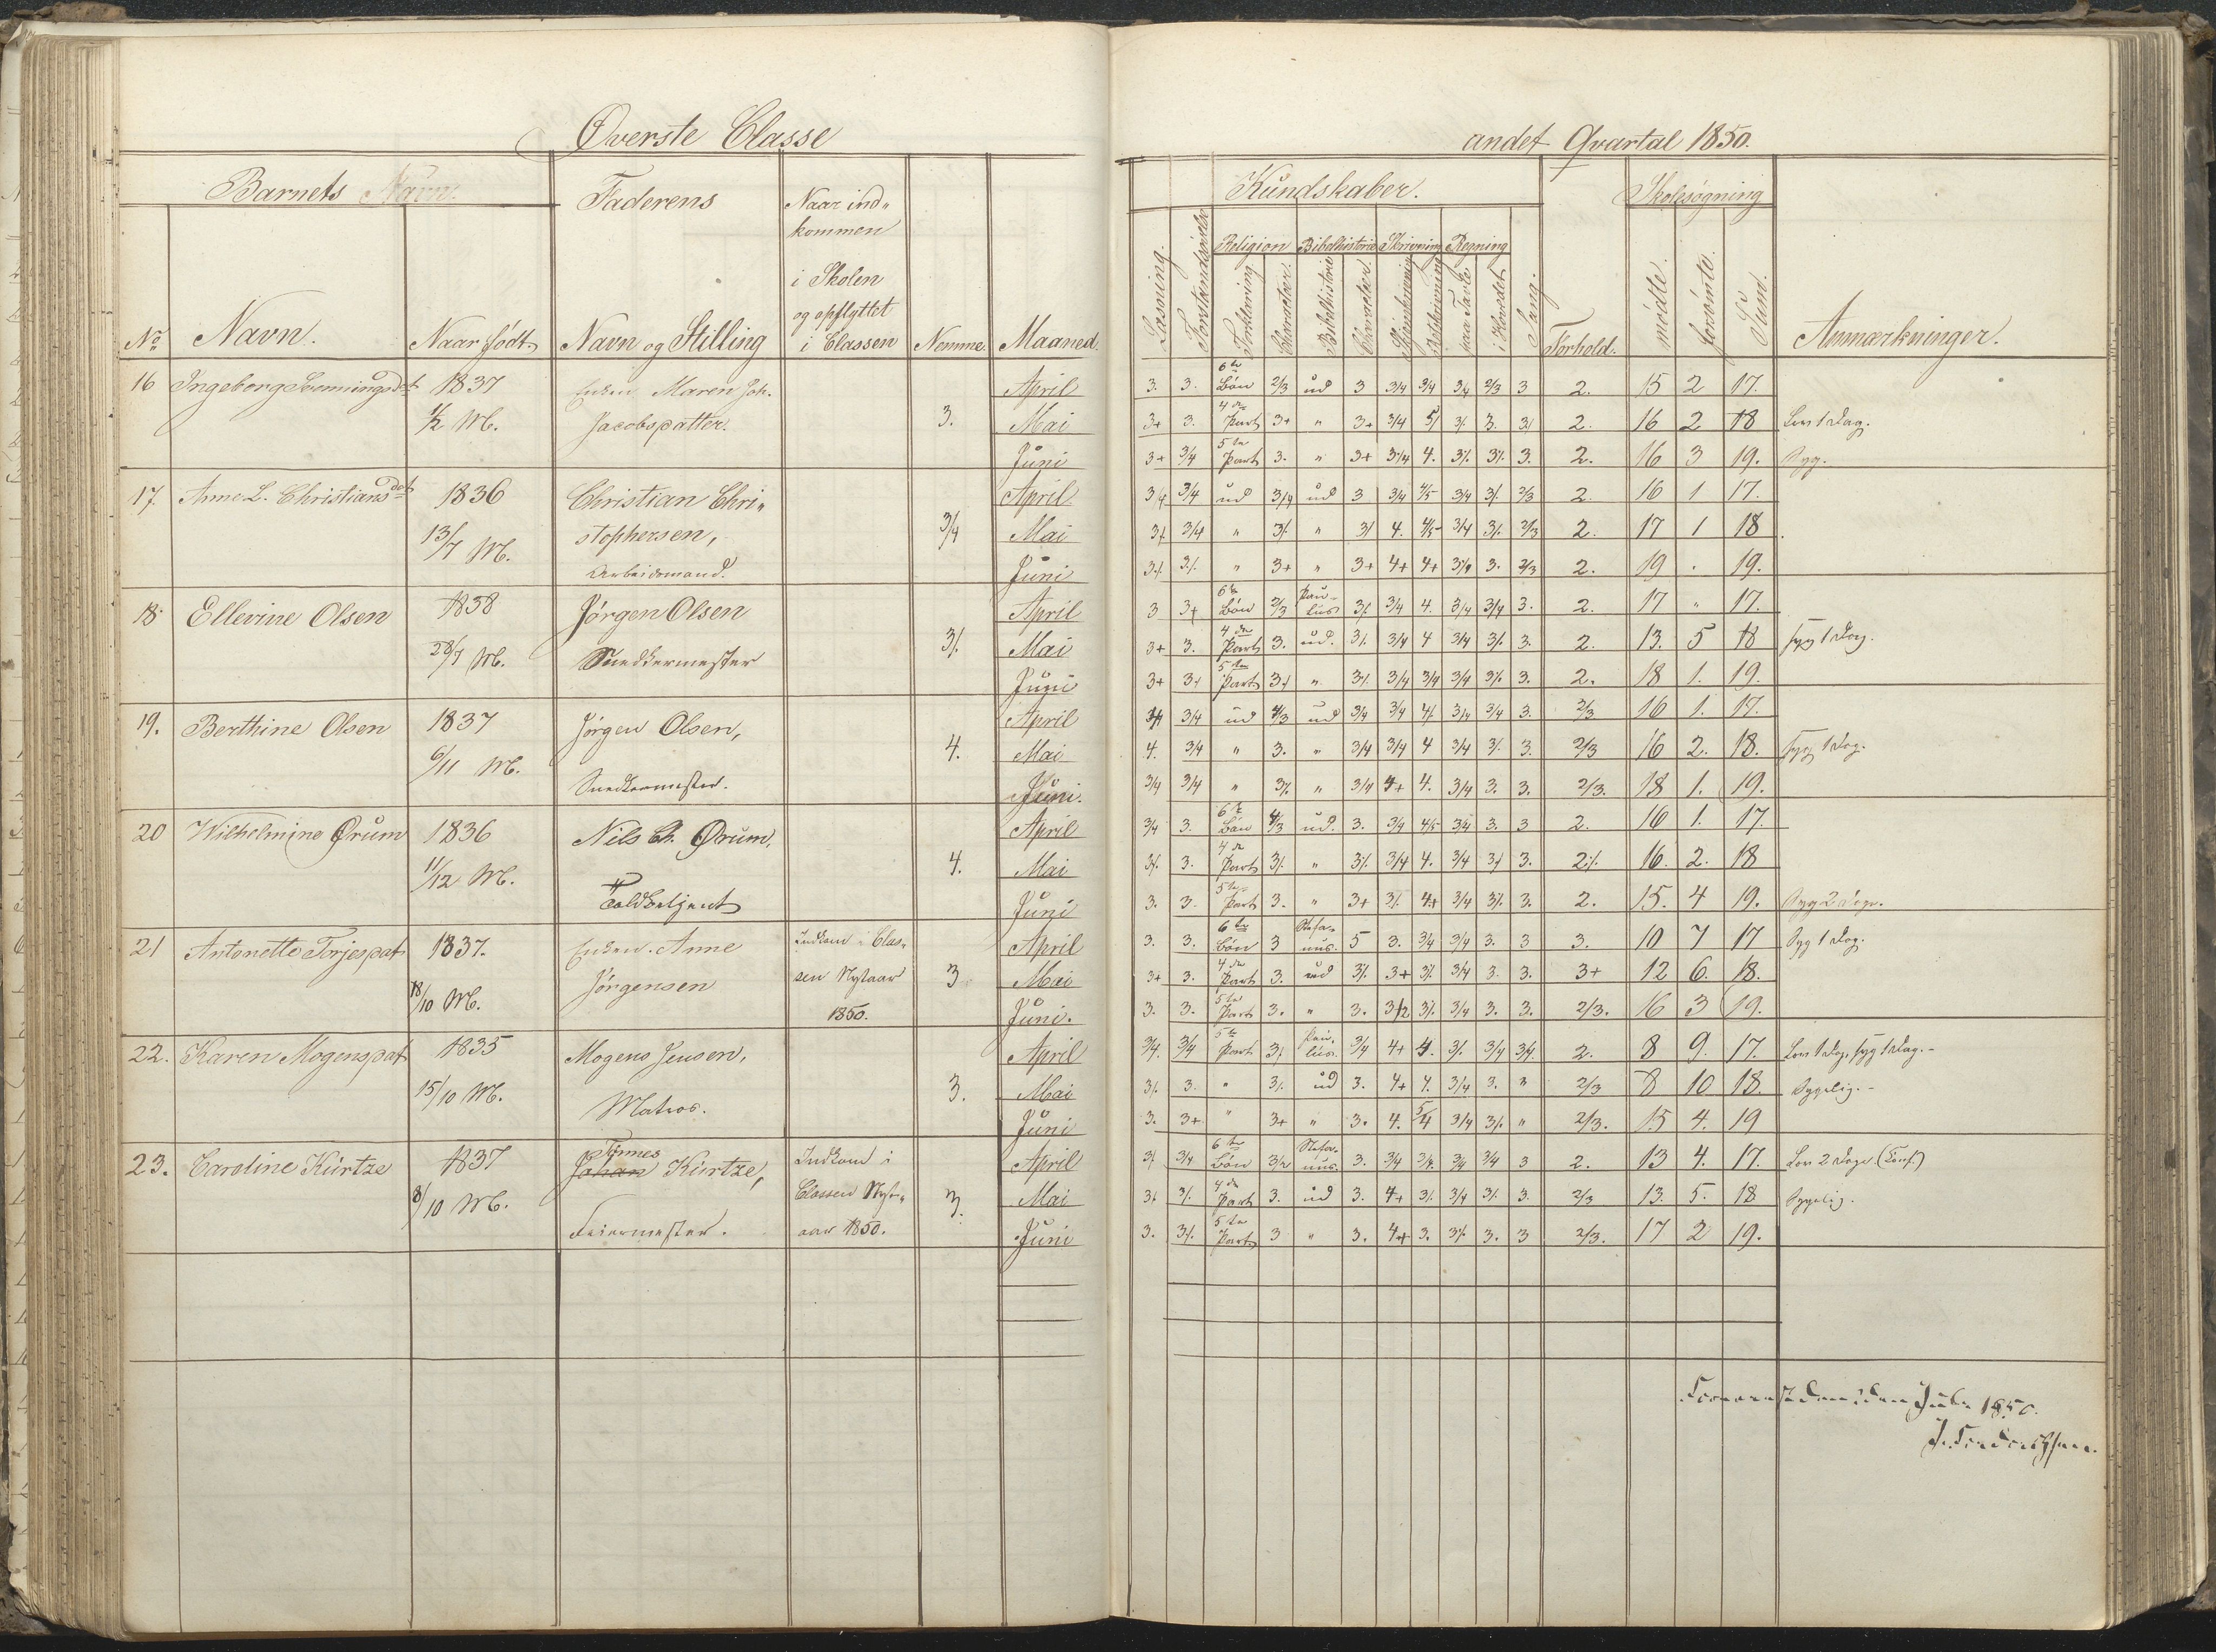 Øverste Classe
andet Qvartal 1850.
Barnets Navn.
Faderens
Naar ind„
kommen
i Skolen
og opflyttet
i Classen
No Navn. Naar født. Navn og Stilling Nemme. Maaned.
Kundskaber. Skolesøgning
Religion Bibelhistorie Skrivning Regning
Læsning. Forstandsøvelse Forklaring Character. Bibelhistorie Character. Skjønskrivning Retskrivning paa Tavle i Hovedet Sang. Forhold. mødte. forsømte. Sum. Anmærkninger.
16 Ingeborg Svenningsdat 1837 Enken Maren Joh. April 3. 3. 6te Bøn 2/3 ud 3 3/4 3/4 3/4 2/3 3 2. 15 2 17.
1/2 M. Jacobspatter. 3. Mai 3+ 3. 4de Part 3+ „ 3+ 3/4 5/ 3/. 3. 3/ 2. 16 2 18 Lov 1 Dag.
Juni 3+ 3/4 5te Part 3. „ 3+ 3/4 4. 3/. 3/. 3. 2. 16 3 19. Syg.
17. Anne L. Christiansdat 1836 Christian Chri„ April 3/4 3/4 ud 3/4 ud 3 3/4 4/5 3/4 3/. 2/3 2. 16 1 17.
13/7 M. stophersen, 3/4 Mai 3/. 3/4 „ 3/. „ 3/ 4. 4/5 3/4 3/. 2/3 2. 17 1 18
Arbeidsmand. Juni 3/. 3/. „ 3+ „ 3+ 4+ 4+ 3/4 3. 2/3 2. 19 . 19.
18. Ellevine Olsen 1838 Jørgen Olsen April 3 3+ 6te Bøn 2/3 Pau-lus 3/. 3/4 4. 3/4 3/4 3. 2. 17 „ 17.
28/7 M. Snedkermester 3/. Mai 3+ 3. 4de Part 3. ud. 3/. 3/4 4 3/4 3/. 3. 2. 13. 5 18 syg 1 Dag.
Juni 3+ 3+ 5te Part 3+ „ 3/. 3/4 3/4 3/4 3/. 3. 2. 18 1. 19.
19. Berthine Olsen 1837 Jørgen Olsen, April 3/4 3/4 ud 4/3 ud 3/4 3/4 4/. 3/4 3/4 3. 2/3 16 1. 17.
6/11 M. 4. Mai 4. 3/4 „ 3. „ 3/4 3/4 4 3/4 3/. 3. 2/3 16 2. 18. syg 1 Dag.
Snedkermester. Juni. 3/4 3/4 „ 3/. „ 3/4 4+ 4. 3/4 3. 3. 2/3. 18 1. 19.
20 Wilhelmine Ørum 1836 Nils Ch. Ørum, April 3/4 3. 6te Bøn 4/3 ud. 3. 3/4 4/5 3/4 3. 3 2. 16 1. 17.
11/12 M. 4. Mai 3/. 3. 4de Part 3/. „ 3/. 3/4 4. 3/4 3/ 3. 2/. 16. 2. 18
Toldbetjent Juni 3. 3. 5te Part 3. „ 3+ 3/. 4+ 3/4 3/. 3. 2. 15. 4 19. Syg 2 Dage.
21 Antonette Torjespat 1837. Enken Anne Indkom i Clas„ April 3. 3. 6te Bøn 3 Stefa-nus. 5 3. 3/4 3/4 3. 3 3. 10 7 17 Syg 1 Dag.
18/10 M. Jørgensen sen Nytaar 3 Mai 3+ 3. 4de Part 3. ud 3/. 3+ 3/. 3/4 3. 3. 3+ 12 6. 18.
1850. Juni. 3. 3. 5te Part 3. „ 3. 3/2 3/. 3/4 3. 3. 2/3. 16 3 19.
22. Karen Mogenspat 1835 Mogens Jensen, April 3/4. 3/4 5te Part 3/. Pau-lus. 3/4 4+ 4. 3/. 3/4 3/4. 2. 8 9. 17. Lov 1 Dag, syg 1 Dag.-
15/10 M. Matros. 3. Mai 3/. 3. „ 3/. ud 3. 4+ 4. 3/4 3. „ 2/3 8 10 18. Sygelig.-
Juni 3. 3+ „ 3+ „ 3. 4. 5/4 3/4 3/. „ 2/3. 15 4. 19
23. Caroline Kürtze 1837 Tønnes Johan Kürtze, Indkom i April 3/ 3/4 6te Bøn 3/2 Stefa-nus. 3. 3/4 3/4. 3/4 3/4 3 2. 13 4. 17. Lov 2 Dage. (Conf.)
8/10 M. Classen Nyt„ 3. Mai 3/. 3/. 4de Part 3. ud 3. 4+ 3/. 3/4 3/. 3. 2/3 13. 5. 18 Sygelig.
Feiermester. aar 1850. Juni 3. 3/. 5te Part 3 „ 3. 4+ 3. 3/. 3. 3 2/3. 17 2 19.
1850.